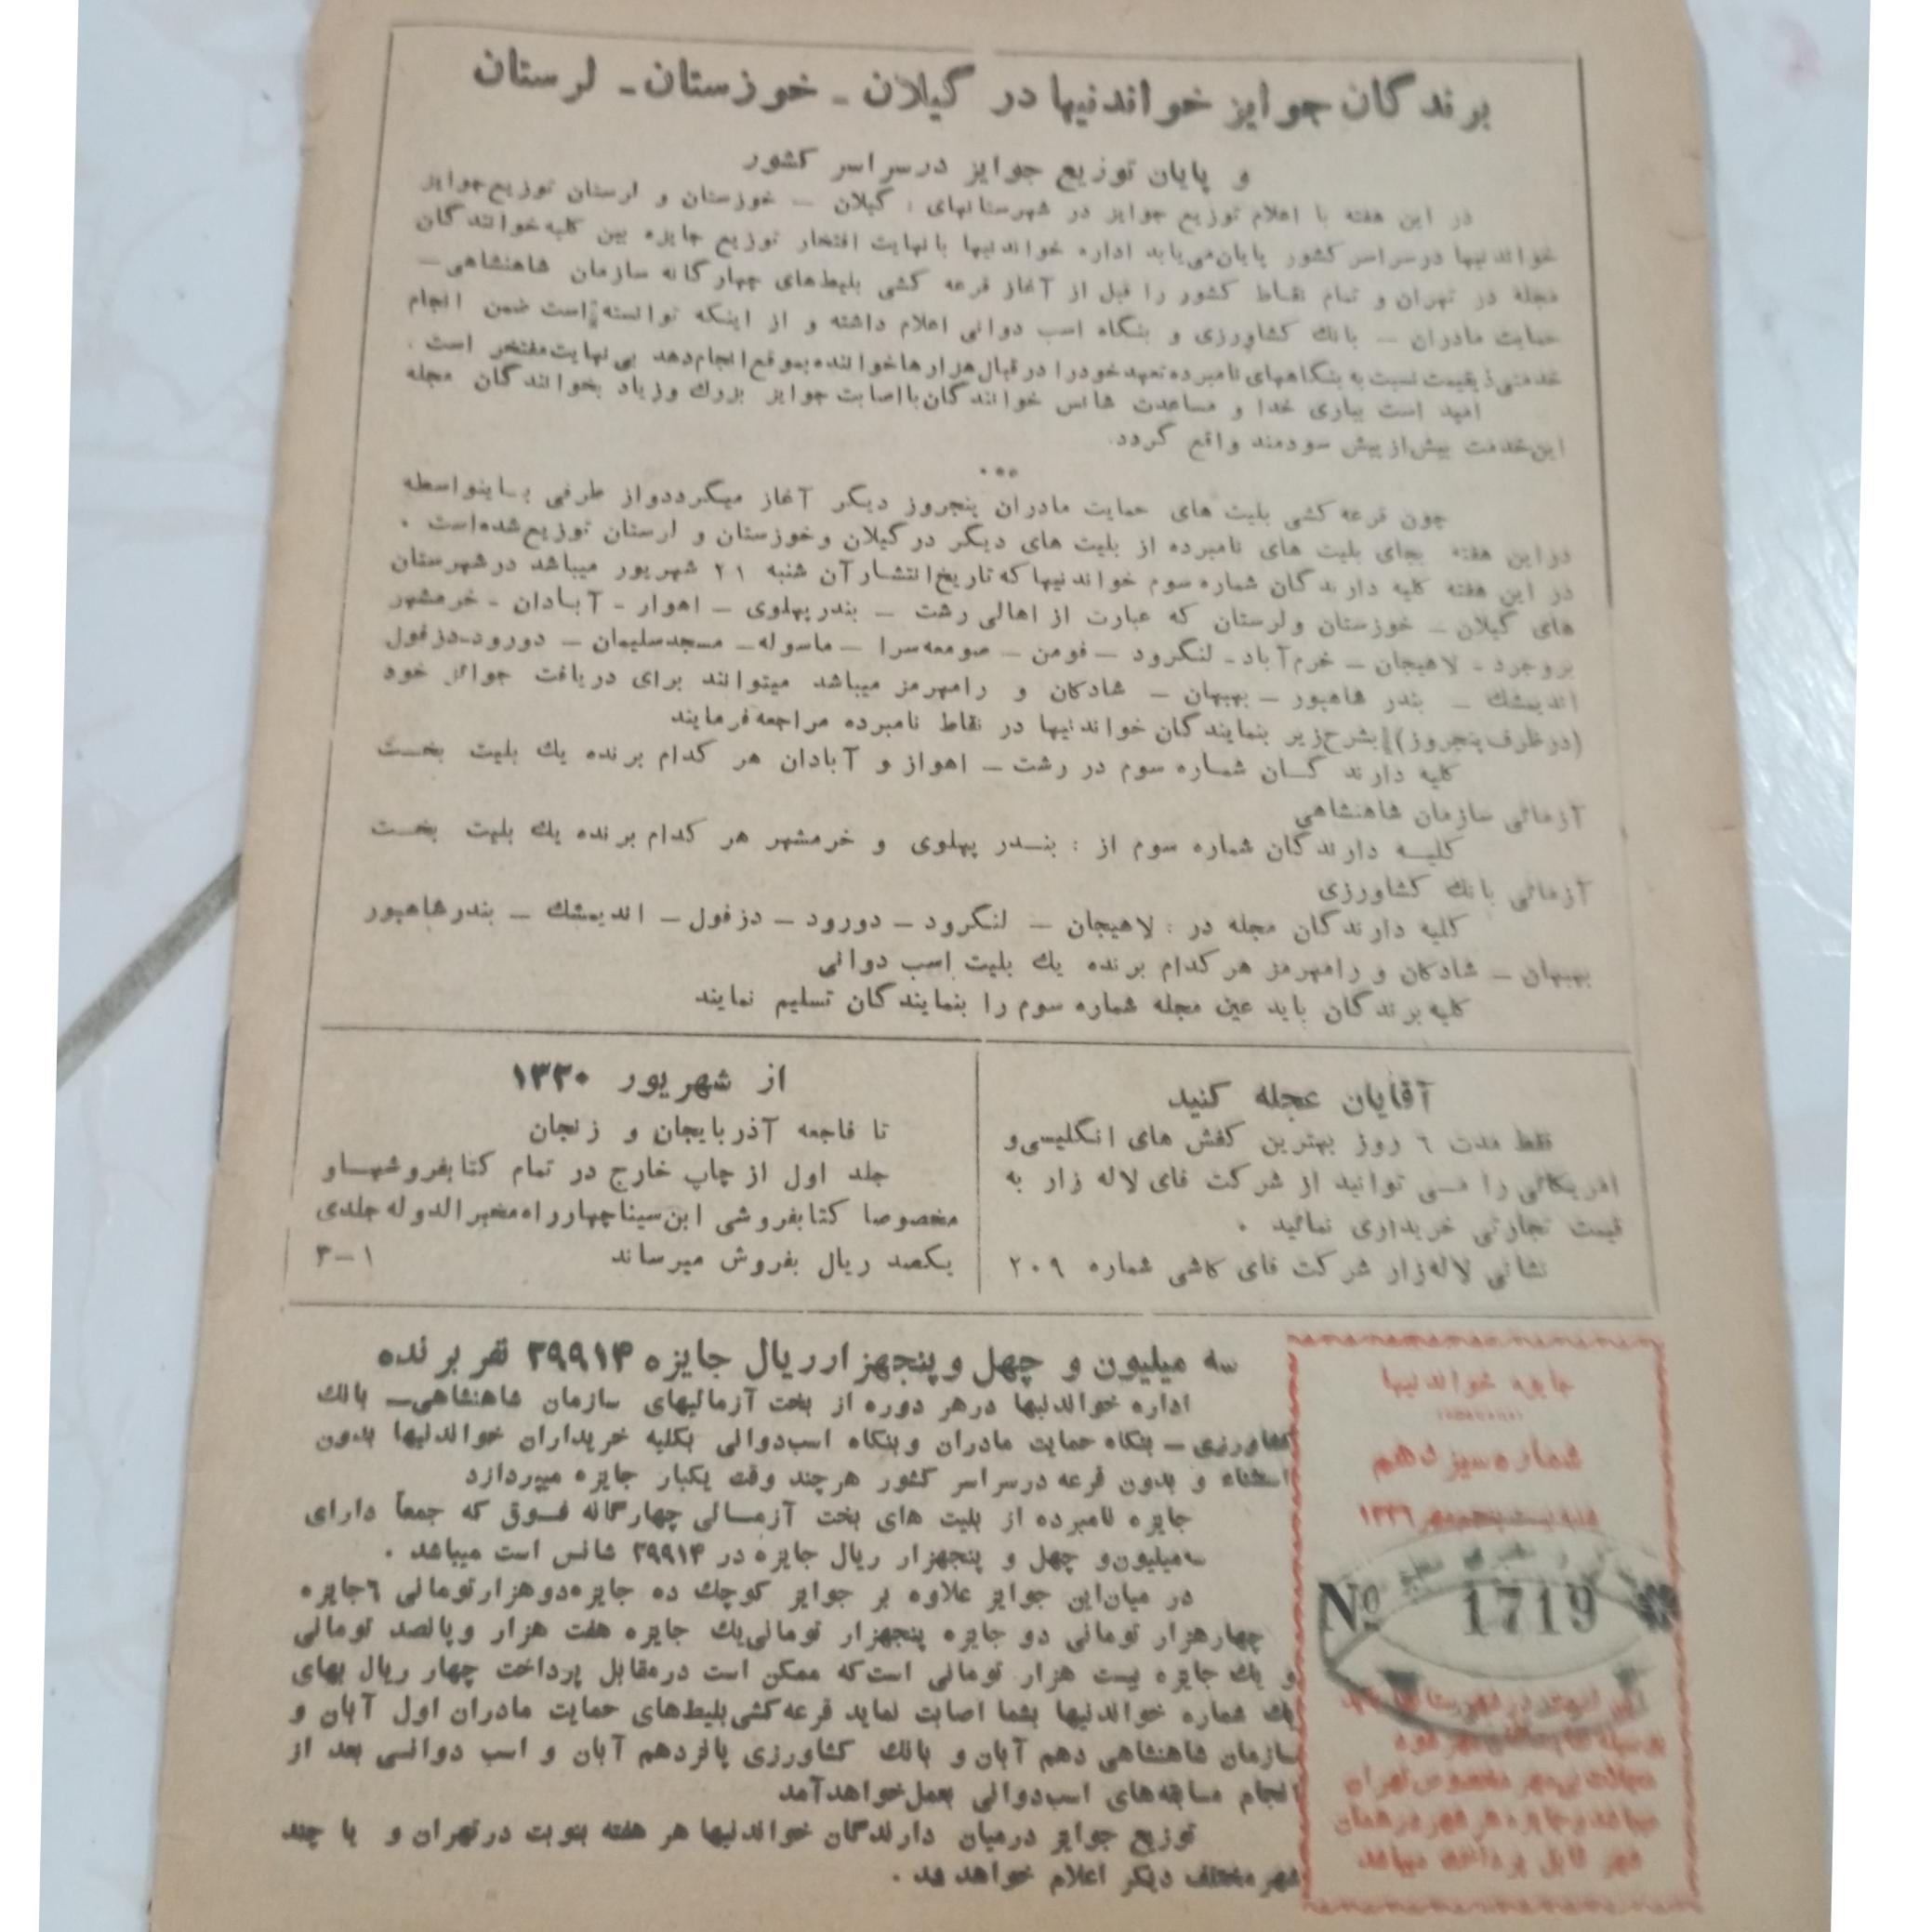 برندگان جوایز خواندنیها در گیلان ـ خوزستان ـ لرستان
و پایان توزیع جوایز درسراسر کشور
در این هفته با اعلام توزیع جوایز در شهرستانهای : گیلان ـ خوزستان و لرستان توزیع جوایز
خواندنیها درسراسر کشور پایان می‌یابد اداره خواندنیها با نهایت افتخار توزیع جایزه بین کلیه خوانندگان
مجله در تهران و تمام نقاط کشور را قبل از آغاز قرعه کشی بلیط‌های چهارگانه سازمان شاهنشاهی ـ
حمایت مادران ـ بانك کشاورزی و بنگاه اسب دوانی اعلام داشته و از اینکه توانسته است ضمن انجام
خدمتی ذیقیمت نسبت به بنگاههای نامبرده تعهد خودرا در قبال هزارها خواننده بموقع انجام دهد بی نهایت مفتخر است .
امید است بیاری خدا و مساعدت شانس خوانندگان با اصابت جوایز بزرك وزیاد بخوانندگان مجله
این خدمت بیش از پیش سودمند واقع گردد.
***
چون قرعه کشی بلیت های حمایت مادران پنجروز دیگر آغاز میگرددواز طرفی بـاینواسطه
دراین هفته بجای بلیت های نامبرده از بلیت های دیگر در گیلان و خوزستان و لرستان توزیع شده است .
در این هفته کلیه دارندگان شماره سوم خواندنیها که تاریخ انتشار آن شنبه ۲۱ شهریور میباشد در شهرستان
های گیلان ـ خوزستان ولرستان که عبارت از اهالی رشت ـ بندرپهلوی ـ اهواز ـ آبـادان ـ خرمشهر
بروجرد ـ لاهیجان ـ خرم آباد ـ لنگرود ـ فومن ـ صومعه سرا ـ ماسوله ـ مسجدسلیمان ـ دورود ـ دزفول
اندیمشك ـ بندر شاهپور ـ بهبهان ـ شادکان و رامهرمز میباشد میتوانند برای دریافت جوائز خود
(در ظرف پنجروز) بشرح زیر بنمایندگان خواندنیها در نقاط نامبرده مراجعه فرمایند
کلیه دارند گـان شماره سوم در رشت ـ اهواز و آبادان هر کدام برنده یك بلیت بخـت
آزمائی سازمان شاهنشاهی
کلیـه دارندگان شماره سوم از : بنـدر پهلوی و خرمشهر هر کدام برنده یك بلیت بخـت
آزمائی بانك کشاورزی
کلیه دارندگان مجله در : لاهیجان ـ لنگرود ـ دورود ـ دزفول ـ اندیمشك ـ بندرشاهپور
بهبهان ـ شادکان و رامهرمز هر کدام برنده یك بلیت اسب دوانی
کلیه برندگان باید عین مجله شماره سوم را بنمایندگان تسلیم نمایند
آقایان عجله کنید
فقط مدت ۶ روز بهترین کفش های انگلیسی و
امریکائی را مـی توانید از شرکت فای لاله زار به
قیمت تجارتی خریداری نمائید .
نشانی لاله‌زار شرکت فای کاشی شماره ۲۰۹
از شهریور ۱۳۲۰
تا فاجعه آذربایجان و زنجان
جلد اول از چاپ خارج در تمام کتابفروشهـا و
مخصوصا کتابفروشی ابن سینا چهارراه مخبرالدوله جلدی
یکصد ریال بفروش میرساند ۱ـ۳
سه میلیون و چهل و پنجهزار ریال جایزه ۲۹۹۱۴ نفر برنده
اداره خواندنیها درهر دوره از بخت آزمائیهای سازمان شاهنشاهی ـ بانك
کشاورزی ـ بنگاه حمایت مادران و بنگاه اسب دوانی بکلیه خریداران خواندنیها بدون
استثناء و بدون قرعه درسراسر کشور هرچند وقت یکبار جایزه میپردازد
جایزه نامبرده از بلیت های بخت آزمـائی چهارگانه فـوق که جمعاً دارای
سه میلیون و چهل و پنجهزار ریال جایزه در ۲۹۹۱۴ شانس است میباشد .
در میان این جوایز علاوه بر جوایز کوچك ده جایزه دوهزار تومانی ۶ جایزه
چهارهزار تومانی دو جایزه پنجهزار تومانی یك جایزه هفت هزار و پانصد تومانی
و یك جایزه بیست هزار تومانی است که ممکن است درمقابل پرداخت چهار ریال بهای
یك شماره خواندنیها بشما اصابت نماید قرعه کشی بلیطهای حمایت مادران اول آبان و
سازمان شاهنشاهی دهم آبان و بانك کشاورزی پانزدهم آبان و اسب دوانی بعد از
انجام مسابقه‌های اسب دوانی بعمل خواهد آمد
توزیع جوایز درمیان دارندگان خواندنیها هر هفته بنوبت در تهران و یا چند
شهر مختلف دیگر اعلام خواهد شد .
جایزه خواندنیها
شماره سیزدهم
شنبه بیست پنجم مهر ۱۳۲۶
№ 1719
مخصوص تهران
میباشد و جایزه هر شهر در همان
شهر قابل پرداخت میباشد